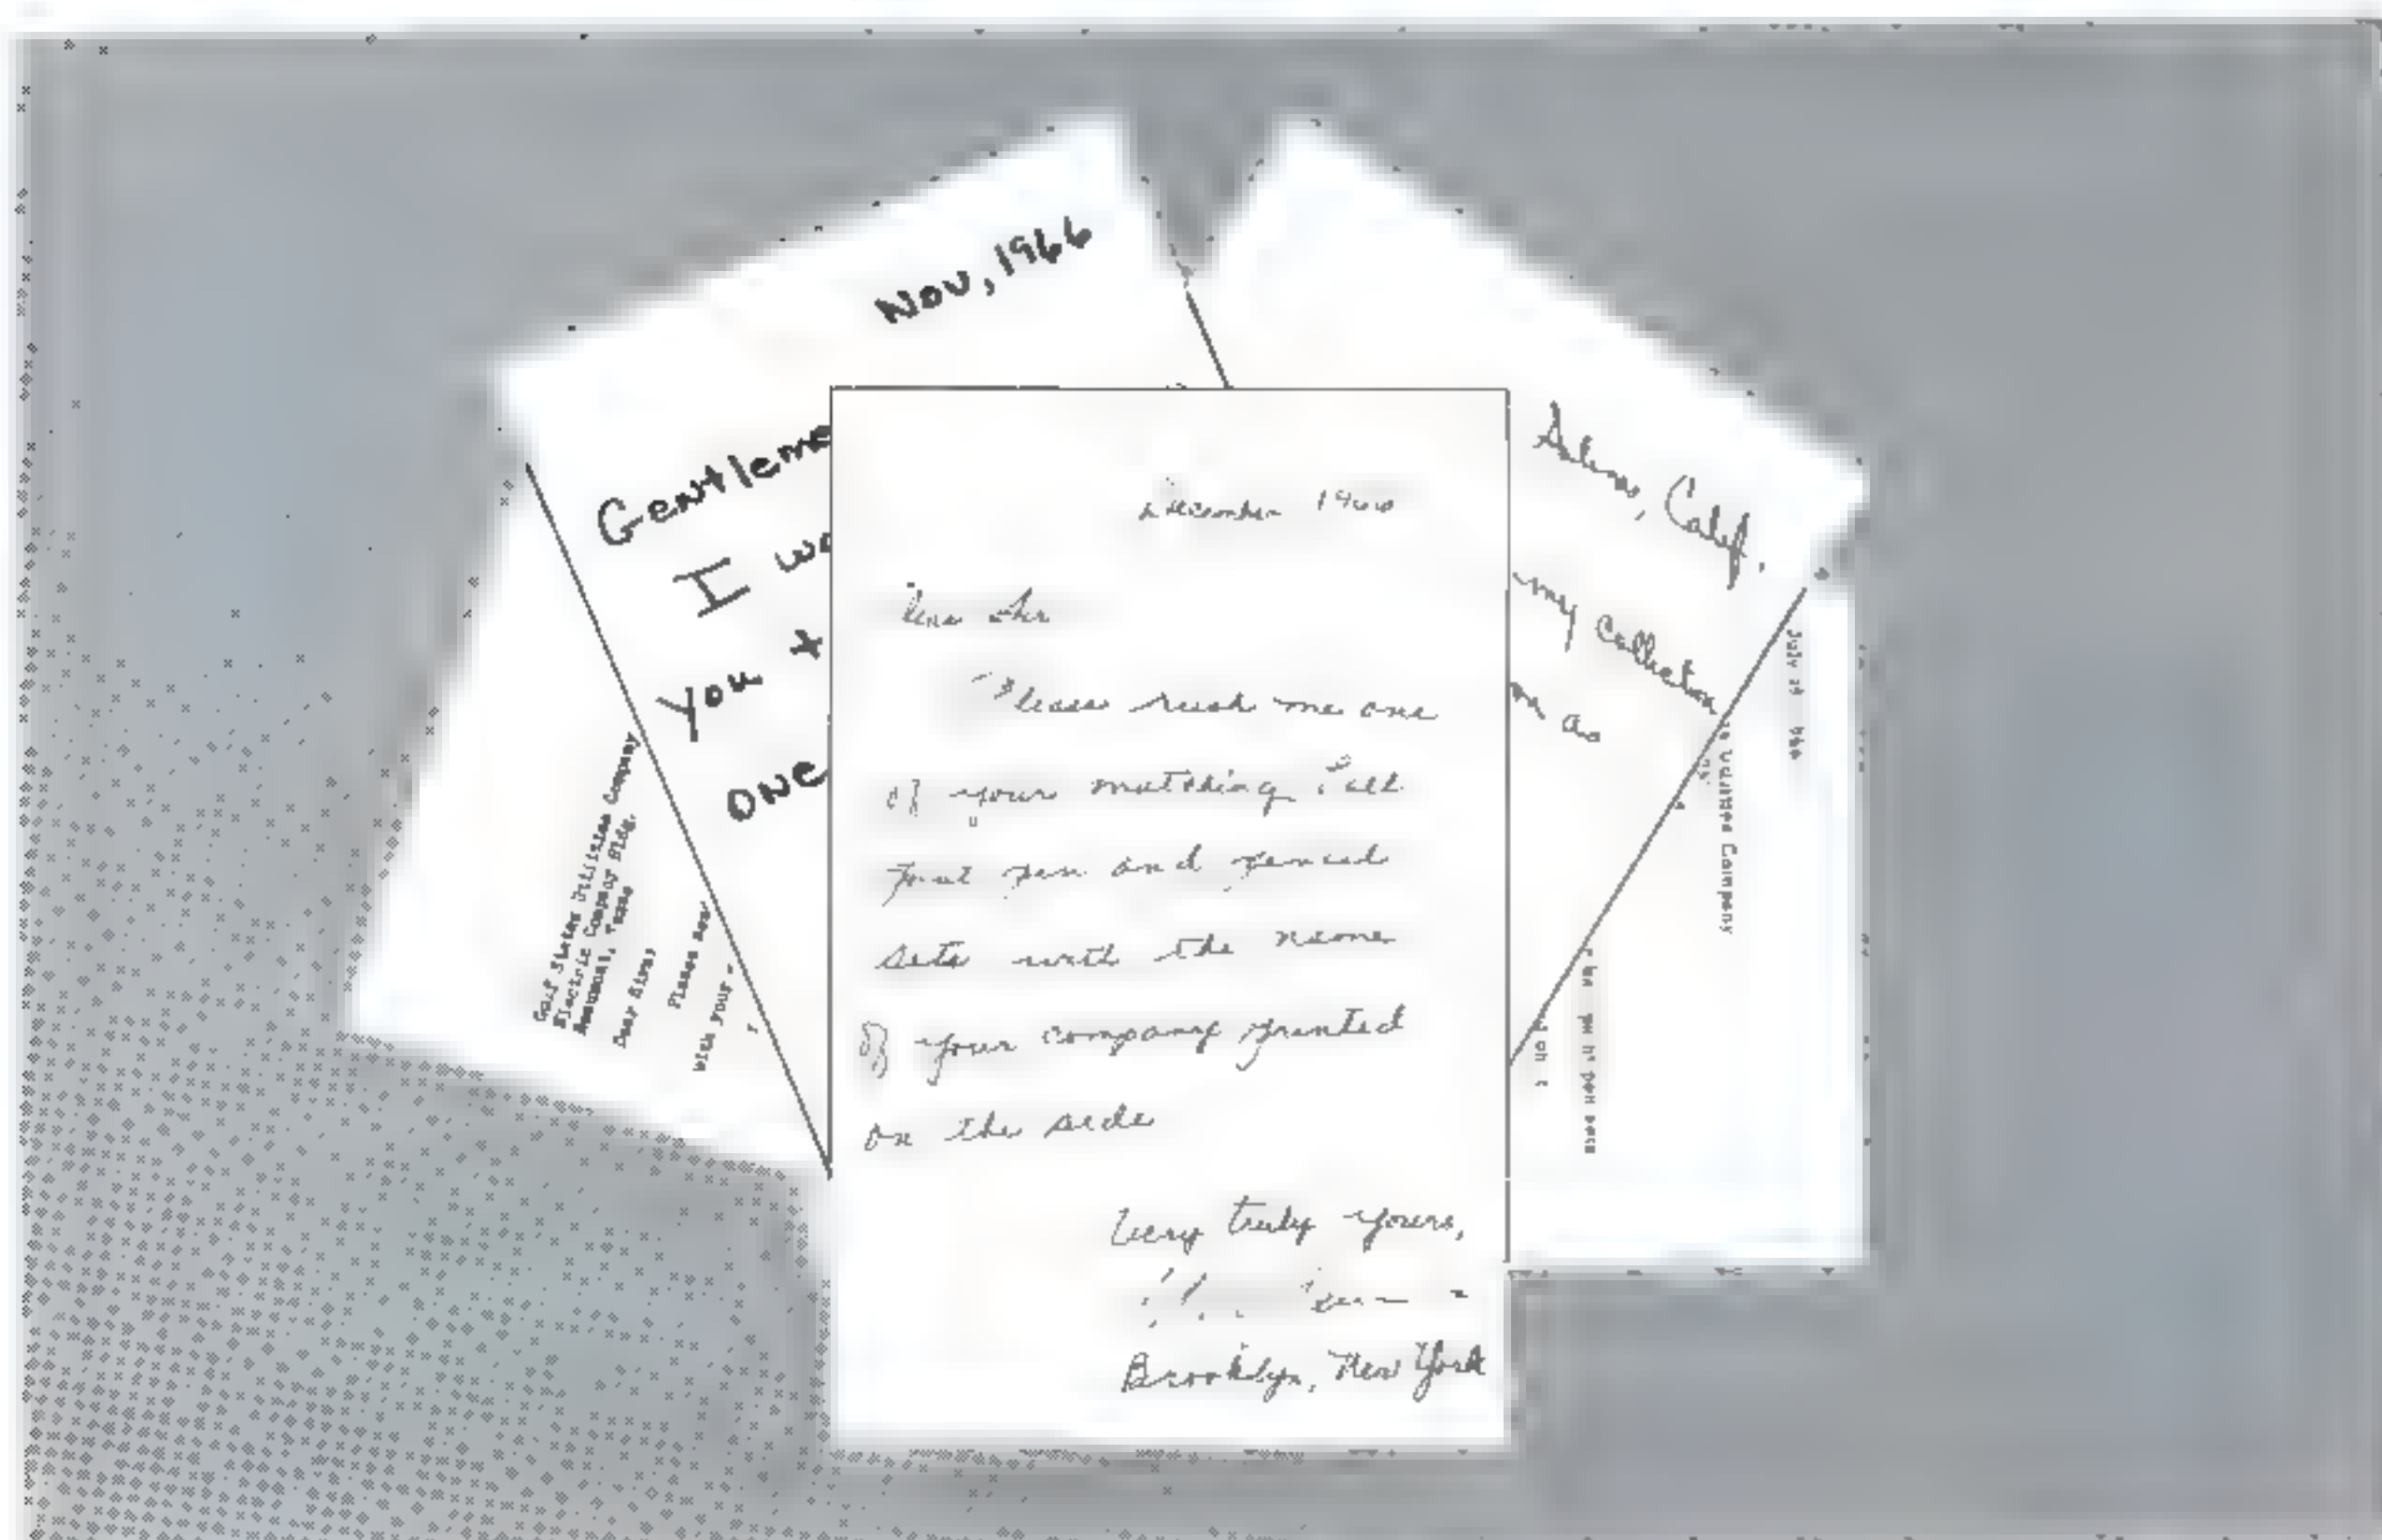 Nov, 1966
Gentleme
I wo
you
one
Gulf States Utilities Company
Electric Company Bldg.
Beaumont, Texas
Dear Sirs,
Please
with your
December
Dear Sir
Please rush me one
of your matching ball
point pen and pencil
sets with the name
of your company printed
on the side
Very truly yours,
Brooklyn, New York
Calif.
my collection
as
July
Company
pen sets